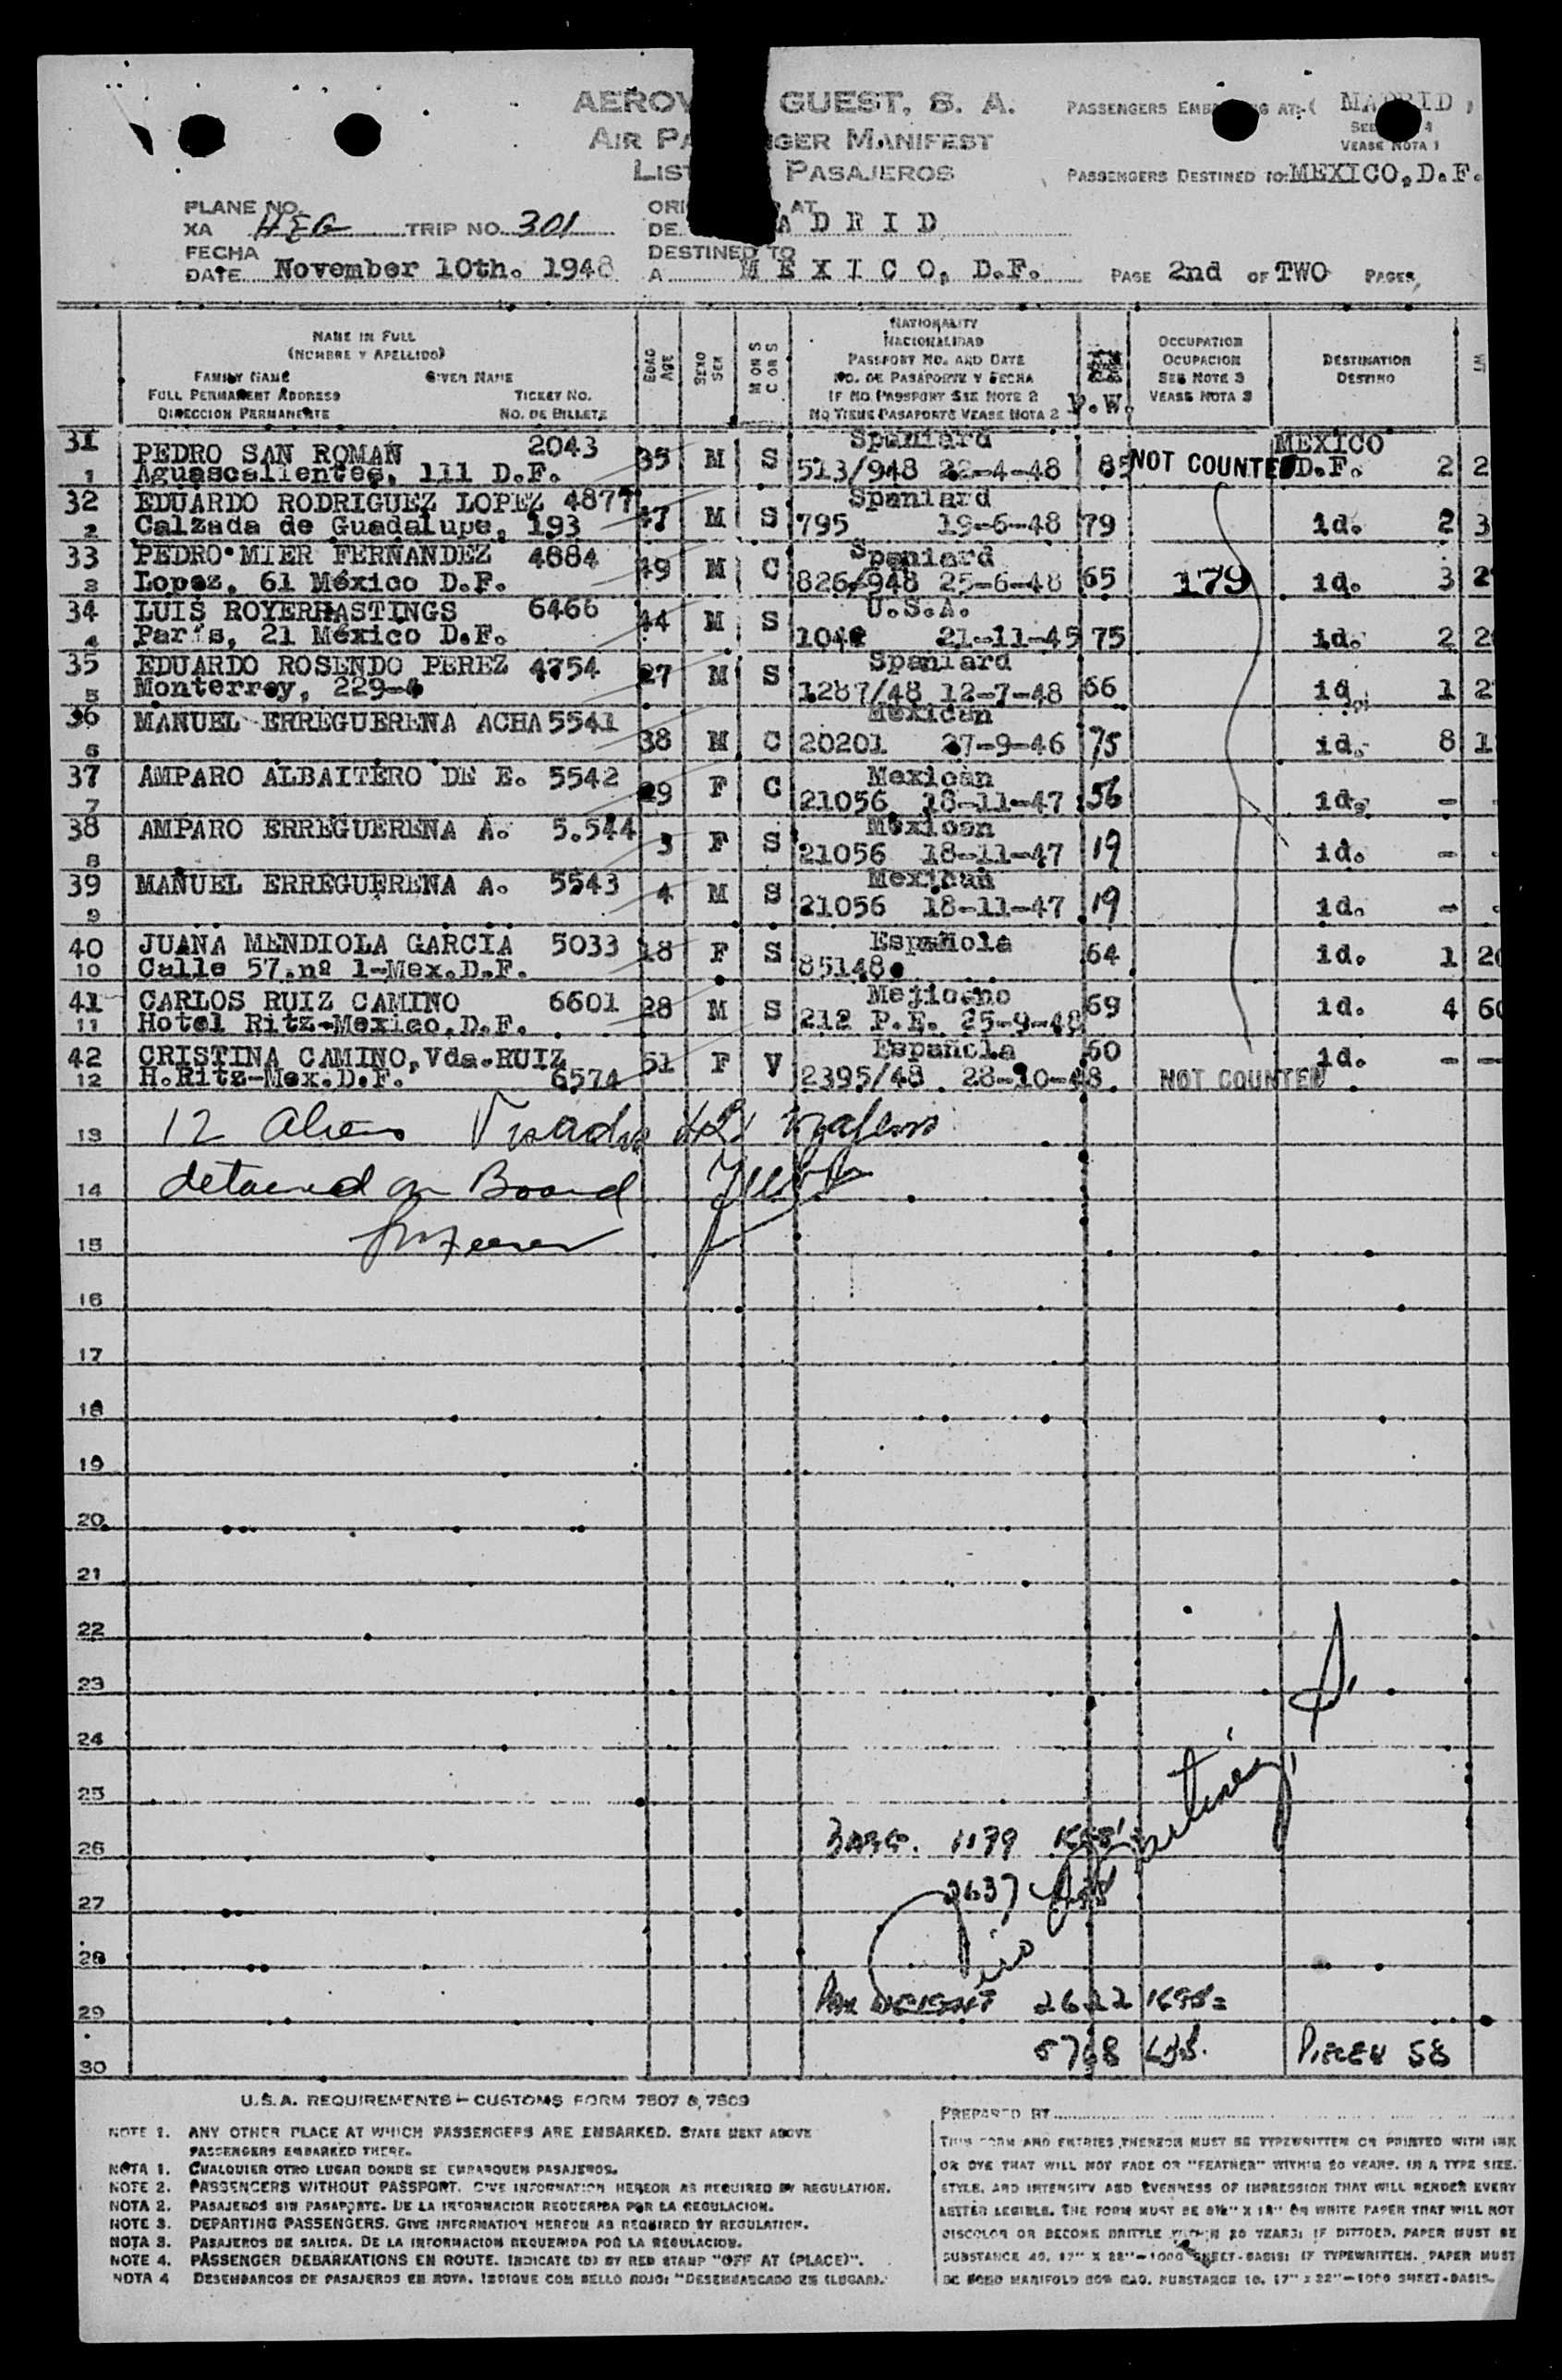 AEROV GUEST, S. A.
AIR PA NGER MANIFEST
LIST PASAJEROS
PASSENGERS EMBA NG AT:-( MADRID )
SEE 4
VEASE NOTA 1
PASSENGERS DESTINED TO: MEXICO, D.F.
PLANE NO.
XA HEG TRIP NO. 301
ORI D AT
DE ADRID
FECHA
DATE November 10th. 1948
DESTINED TO
A MEXICO, D.F.
PAGE 2nd OF TWO PAGES
NAME IN FULL
(NOMBRE Y APELLIDO)
FAMILY NAME GIVEN NAME
FULL PERMANENT ADDRESS TICKET NO.
DIRECCION PERMANENTE NO. DE BILLETE
EDAD
AGE
SEXO
SEX
M OR S
C OR S
NATIONALITY
NACIONALIDAD
PASSPORT NO. AND DATE
NO. DE PASAPORTE Y FECHA
IF NO PASSPORT SEE NOTE 2
NO TIENE PASAPORTE VEASE NOTA 2
P.W.
OCCUPATION
OCUPACION
SEE NOTE 3
VEASE NOTA 3
DESTINATION
DESTINO
31 PEDRO SAN ROMAN 2043 Spaniard MEXICO
1 Aguascalientes, 111 D.F. 35 M S 513/948 22-4-48 85 NOT COUNTED D.F. 2 2
32 EDUARDO RODRIGUEZ LOPEZ 4877 Spaniard
2 Calzada de Guadalupe, 193 47 M S 795 19-6-48 79 id. 2 3
33 PEDRO MIER FERNANDEZ 4884 Spaniard
3 Lopez, 61 México D.F. 49 M C 826/948 25-6-48 65 179 id. 3 2
34 LUIS ROYERHASTINGS 6466 U.S.A.
4 París, 21 México D.F. 44 M S 21-11-45 75 id. 2 2
35 EDUARDO ROSENDO PEREZ 4754 Spaniard
5 Monterrey, 229-4 27 M S 1287/48 12-7-48 66 id. 1 2
36 MANUEL ERREGUERENA ACHA 5541 Mexican
6 38 M C 20201 27-9-46 75 id. 8 1
37 AMPARO ALBAITERO DE E. 5542 Mexican
7 29 F C 21056 18-11-47 56 id. -
38 AMPARO ERREGUERENA A. 5.544 Mexican
8 3 F S 21056 18-11-47 19 id. - -
39 MANUEL ERREGUERENA A. 5543 Mexican
9 4 M S 21056 18-11-47 19 id. - -
40 JUANA MENDIOLA GARCIA 5033 18 F S Española 64 id. 1 20
10 Calle 57.nº 1-Mex.D.F. 85148
41 CARLOS RUIZ CAMINO 6601 28 M S Mejicano 69 id. 4 60
11 Hotel Ritz-Mexico.D.F. 212 P.E. 25-9-48
42 CRISTINA CAMINO,Vda.RUIZ 51 F V Española 60 id. - -
12 H.Ritz-Mex.D.F. 6574 2395/48 28-10-48 NOT COUNTED
13 12 Aliens Visados
14 detained on Board
15
16
17
18
19
20
21
22
23
24
25
26 BAGG. 1179 KGS
27 2637
28
29 PAX WEIGHT 2622 KGS=
30 5768 LBS. PIECES 58
U.S.A. REQUIREMENTS - CUSTOMS FORM 7507 & 7509
NOTE 1. ANY OTHER PLACE AT WHICH PASSENGERS ARE EMBARKED. STATE NEXT ABOVE
PASSENGERS EMBARKED THERE.
NOTA 1. CUALQUIER OTRO LUGAR DONDE SE EMBARQUEN PASAJEROS.
NOTE 2. PASSENGERS WITHOUT PASSPORT. GIVE INFORMATION HEREON AS REQUIRED BY REGULATION.
NOTA 2. PASAJEROS SIN PASAPORTE. DE LA INFORMACION REQUERIDA POR LA REGULACION.
NOTE 3. DEPARTING PASSENGERS. GIVE INFORMATION HEREON AS REQUIRED BY REGULATION.
NOTA 3. PASAJEROS DE SALIDA. DE LA INFORMACION REQUERIDA POR LA REGULACION.
NOTE 4. PASSENGER DEBARKATIONS EN ROUTE. INDICATE (D) BY RED STAMP "OFF AT (PLACE)".
NOTA 4 DESEMBARCOS DE PASAJEROS EN RUTA. INDIQUE CON SELLO ROJO: "DESEMBARCADO EN (LUGAR).
PREPARED BY
THIS FORM AND ENTRIES THEREON MUST BE TYPEWRITTEN OR PRINTED WITH INK
OR DYE THAT WILL NOT FADE OR "FEATHER" WITHIN 20 YEARS. IN A TYPE SIZE.
STYLE. AND INTENSITY AND EVENNESS OF IMPRESSION THAT WILL RENDER EVERY
LETTER LEGIBLE. THE FORM MUST BE 8½" X 14" ON WHITE PAPER THAT WILL NOT
DISCOLOR OR BECOME BRITTLE WITHIN 20 YEARS: IF DITTOED. PAPER MUST BE
SUBSTANCE 40. 17" X 22"-1000 SHEET-BASIS: IF TYPEWRITTEN. PAPER MUST
BE BOND MANIFOLD 50% RAG. SUBSTANCE 10. 17" X 22"-1000 SHEET-BASIS.